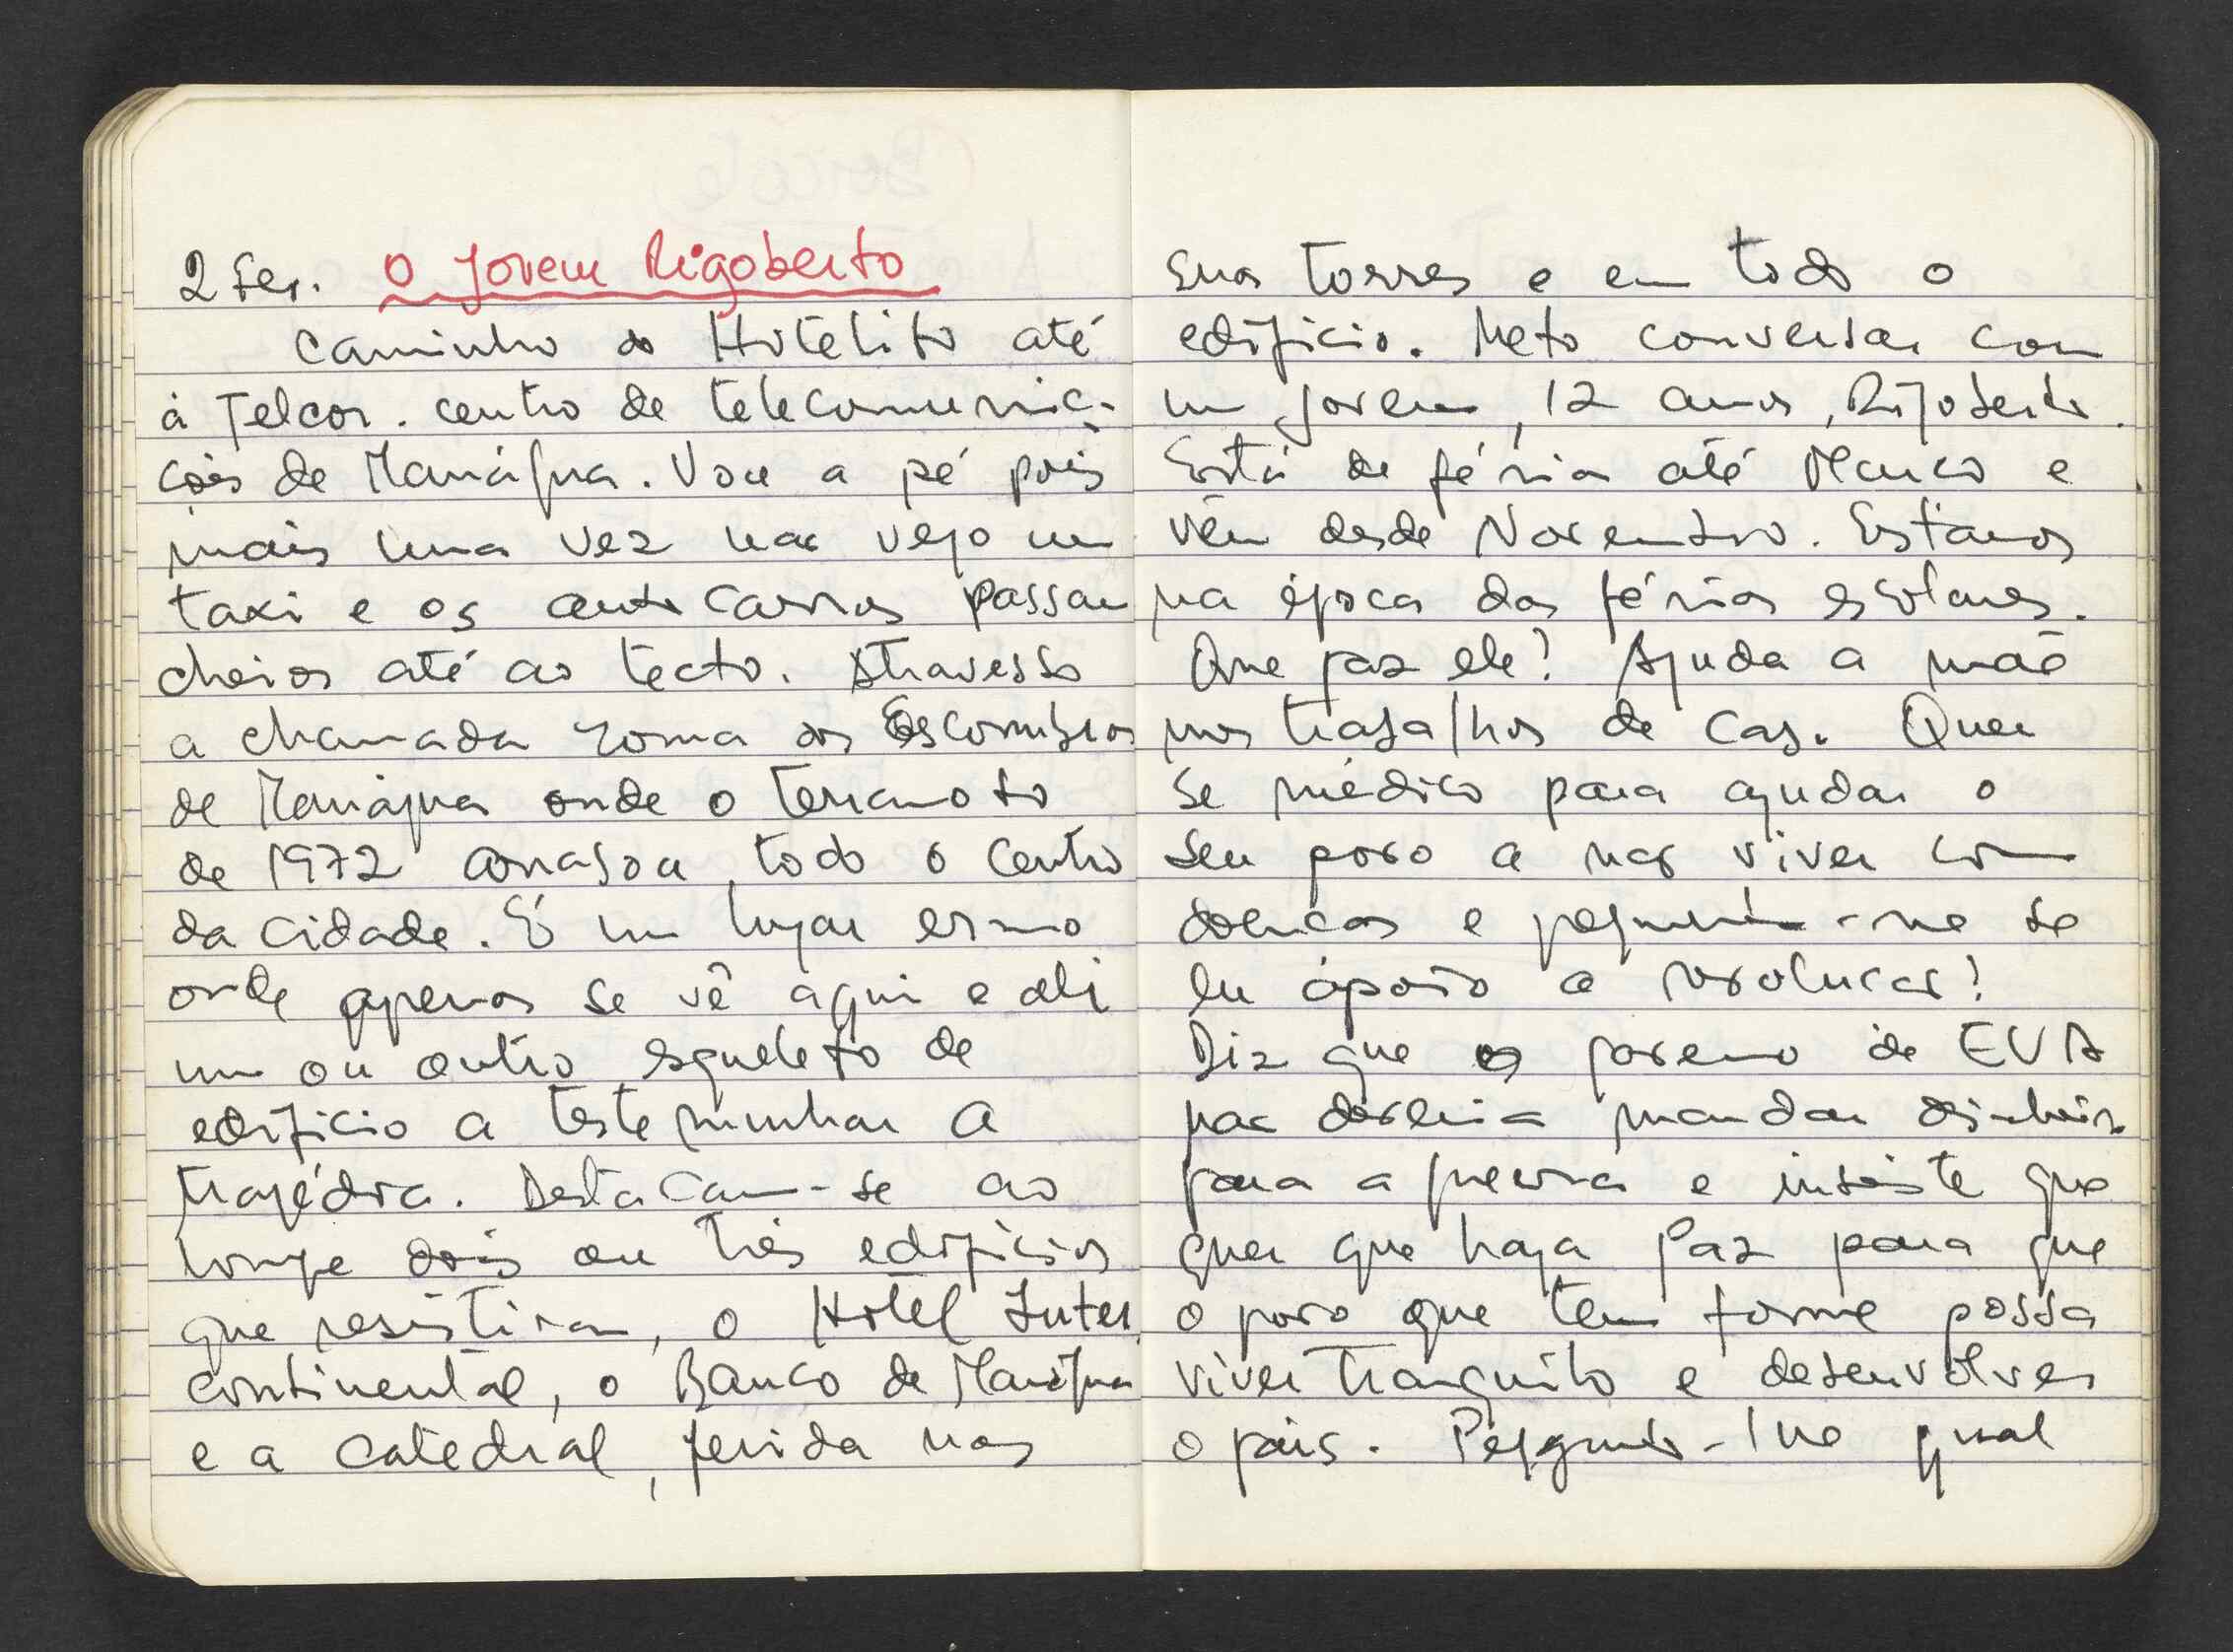 2 Fev. O Jovem Rigoberto
Caminho do Hotelito até
à Telcor. centro de telecomunica-
ções de Manágua. Vou a pé pois
mais uma vez não vejo um
taxi e os autocarros passam
cheios até ao tecto. Atravesso
a chamada zona dos Escombros
de Manágua onde o terramoto
de 1972 arrasou todo o centro
da cidade. É um lugar ermo
onde apenas se vê aqui e ali
um ou outro esqueleto de
edifício a testemunhar a
tragédia. Destacam-se ao
longe dois ou três edifícios
que resistiram, o Hotel Inter
continental, o Banco de Manágua
e a catedral, ferida nas
suas torres e em todo o
edifício. Meto conversar com
um jovem, 12 anos, Rigoberto.
Está de férias até Março e
vêm desde Novembro. Estamos
na época das férias escolares.
Que faz ele? Ajuda a mãe
nos trabalhos de casa. Quer
se médico para ajudar o
seu povo a não viver com
doenças e pergunta-me se
eu apoio a revolução?
Diz que o governo de EUA
não deveria mandar dinheiro
para a guerra e insiste que
quer que haja Paz para que
o povo que tem fome possa
viver tranquilo e desenvolver
o país. Pergunto-lhe qual